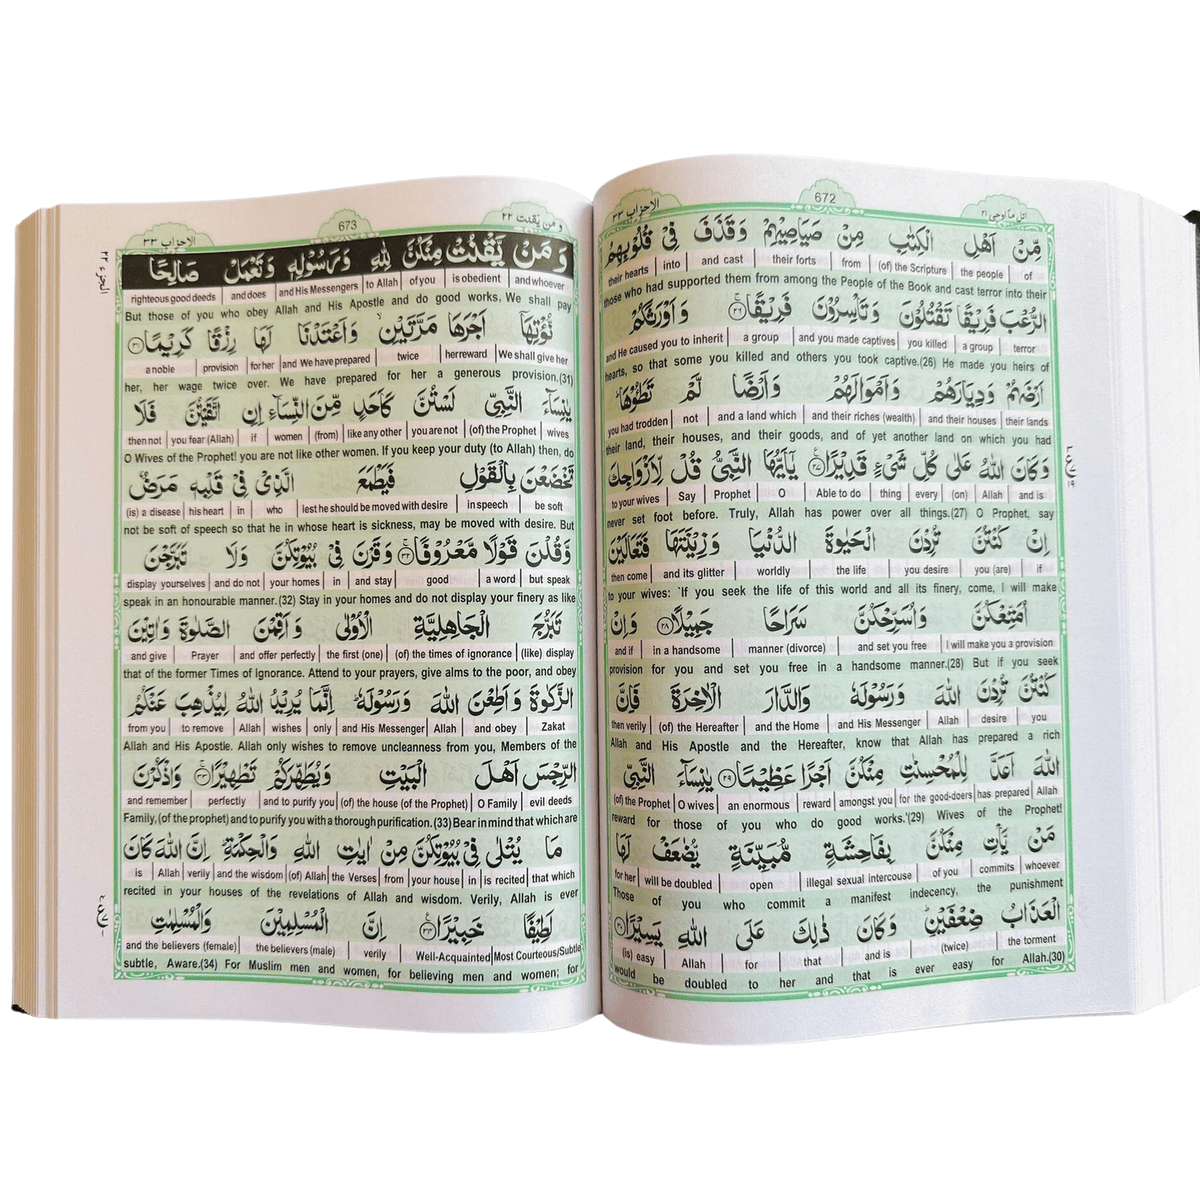 الاحزاب ٣٣
672
اتل ما اوحى ٢١
مِّنْ اَهْلِ الْكِتٰبِ مِنْ صَيَاصِيْهِمْ وَقَذَفَ فِيْ قُلُوْبِهِمُ
their hearts | into | and cast | their forts | from | (of) the Scripture | the people | of
those who had supported them from among the People of the Book and cast terror into their
الرُّعْبَ فَرِيْقًا تَقْتُلُوْنَ وَتَاْسِرُوْنَ فَرِيْقًا ﴿٢٦﴾ وَاَوْرَثَكُمْ
and He caused you to inherit | a group | and you made captives | you killed | a group | terror
hearts, so that some you killed and others you took captive.(26) He made you heirs of
اَرْضَهُمْ وَدِيَارَهُمْ وَاَمْوَالَهُمْ وَاَرْضًا لَّمْ تَطَـُٔوْهَا
you had trodden | not | and a land which | and their riches (wealth) | and their houses | their lands
their land, their houses, and their goods, and of yet another land on which you had
وَكَانَ اللّٰهُ عَلٰى كُلِّ شَيْءٍ قَدِيْرًا ﴿٢٧﴾ يٰٓاَيُّهَا النَّبِيُّ قُلْ لِّاَزْوَاجِكَ
to your wives | Say | Prophet | O | Able to do | thing | every | (on) | Allah | and is
never set foot before. Truly, Allah has power over all things.(27) O Prophet, say
اِنْ كُنْتُنَّ تُرِدْنَ الْحَيٰوةَ الدُّنْيَا وَزِيْنَتَهَا فَتَعَالَيْنَ
then come | and its glitter | worldly | the life | you desire | you (are) | if
to your wives: `If you seek the life of this world and all its finery, come, I will make
اُمَتِّعْكُنَّ وَاُسَرِّحْكُنَّ سَرَاحًا جَمِيْلًا ﴿٢٨﴾ وَاِنْ
and if | in a handsome | manner (divorce) | and set you free | I will make you a provision
provision for you and set you free in a handsome manner.(28) But if you seek
كُنْتُنَّ تُرِدْنَ اللّٰهَ وَرَسُوْلَهٗ وَالدَّارَ الْاٰخِرَةَ فَاِنَّ
then verily | (of) the Hereafter | and the Home | and His Messenger | Allah | desire | you
Allah and His Apostle and the Hereafter, know that Allah has prepared a rich
اللّٰهَ اَعَدَّ لِلْمُحْسِنٰتِ مِنْكُنَّ اَجْرًا عَظِيْمًا ﴿٢٩﴾ يٰنِسَآءَ النَّبِيِّ
(of) the Prophet | O wives | an enormous | reward | amongst you | for the good-doers | has prepared | Allah
reward for those of you who do good works.'(29) Wives of the Prophet!
مَنْ يَّاْتِ مِنْكُنَّ بِفَاحِشَةٍ مُّبَيِّنَةٍ يُّضٰعَفْ لَهَا
for her | will be doubled | open | illegal sexual intercouse | of you | commits | whoever
Those of you who commit a manifest indecency, the punishment
الْعَذَابُ ضِعْفَيْنِ وَكَانَ ذٰلِكَ عَلَى اللّٰهِ يَسِيْرًا ﴿٣٠﴾
(is) easy | Allah | for | that | and is | (twice) | the torment
would be doubled to her and that is ever easy for Allah.(30)
الاحزاب ٣٣
673
و من يقنت ٢٢
الجزء ٢٢
وَمَنْ يَّقْنُتْ مِنْكُنَّ لِلّٰهِ وَرَسُوْلِهٖ وَتَعْمَلْ صَالِحًا
righteous good deeds | and does | and His Messengers | to Allah | of you | is obedient | and whoever
But those of you who obey Allah and His Apostle and do good works, We shall pay
نُّؤْتِهَآ اَجْرَهَا مَرَّتَيْنِ وَاَعْتَدْنَا لَهَا رِزْقًا كَرِيْمًا ﴿٣١﴾
a noble | provision | for her | and We have prepared | twice | herreward | We shall give her
her, her wage twice over. We have prepared for her a generous provision.(31)
يٰنِسَآءَ النَّبِيِّ لَسْتُنَّ كَاَحَدٍ مِّنَ النِّسَآءِ اِنِ اتَّقَيْتُنَّ فَلَا
then not | you fear (Allah) | if | women | (from) | like any other | you are not | (of) the Prophet | wives
O Wives of the Prophet! you are not like other women. If you keep your duty (to Allah) then, do
تَخْضَعْنَ بِالْقَوْلِ فَيَطْمَعَ الَّذِيْ فِيْ قَلْبِهٖ مَرَضٌ
(is) a disease | his heart | in | who | lest he should be moved with desire | in speech | be soft
not be soft of speech so that he in whose heart is sickness, may be moved with desire. But
وَّقُلْنَ قَوْلًا مَّعْرُوْفًا ﴿٣٢﴾ وَقَرْنَ فِيْ بُيُوْتِكُنَّ وَلَا تَبَرَّجْنَ
display yourselves | and do not | your homes | in | and stay | good | a word | but speak
speak in an honourable manner.(32) Stay in your homes and do not display your finery as like
تَبَرُّجَ الْجَاهِلِيَّةِ الْاُوْلٰى وَاَقِمْنَ الصَّلٰوةَ وَاٰتِيْنَ
and give | Prayer | and offer perfectly | the first (one) | (of) the times of ignorance | (like) display
that of the former Times of Ignorance. Attend to your prayers, give alms to the poor, and obey
الزَّكٰوةَ وَاَطِعْنَ اللّٰهَ وَرَسُوْلَهٗ اِنَّمَا يُرِيْدُ اللّٰهُ لِيُذْهِبَ عَنْكُمُ
from you | to remove | Allah | wishes | only | and His Messenger | Allah | and obey | Zakat
Allah and His Apostle. Allah only wishes to remove uncleanness from you, Members of the
الرِّجْسَ اَهْلَ الْبَيْتِ وَيُطَهِّرَكُمْ تَطْهِيْرًا ﴿٣٣﴾ وَاذْكُرْنَ
and remember | perfectly | and to purify you | (of) the house (of the Prophet) | O Family | evil deeds
Family, (of the prophet) and to purify you with a thorough purification. (33) Bear in mind that which are
مَا يُتْلٰى فِيْ بُيُوْتِكُنَّ مِنْ اٰيٰتِ اللّٰهِ وَالْحِكْمَةِ اِنَّ اللّٰهَ كَانَ
is | Allah | verily | and the wisdom | (of) Allah | the Verses | from | your house | in | is recited | that which
recited in your houses of the revelations of Allah and wisdom. Verily, Allah is ever
لَطِيْفًا خَبِيْرًا ﴿٣٤﴾ اِنَّ الْمُسْلِمِيْنَ وَالْمُسْلِمٰتِ
and the believers (female) | the believers (male) | verily | Well-Acquainted | Most Courteous/Subtle
subtle, Aware.(34) For Muslim men and women, for believing men and women; for